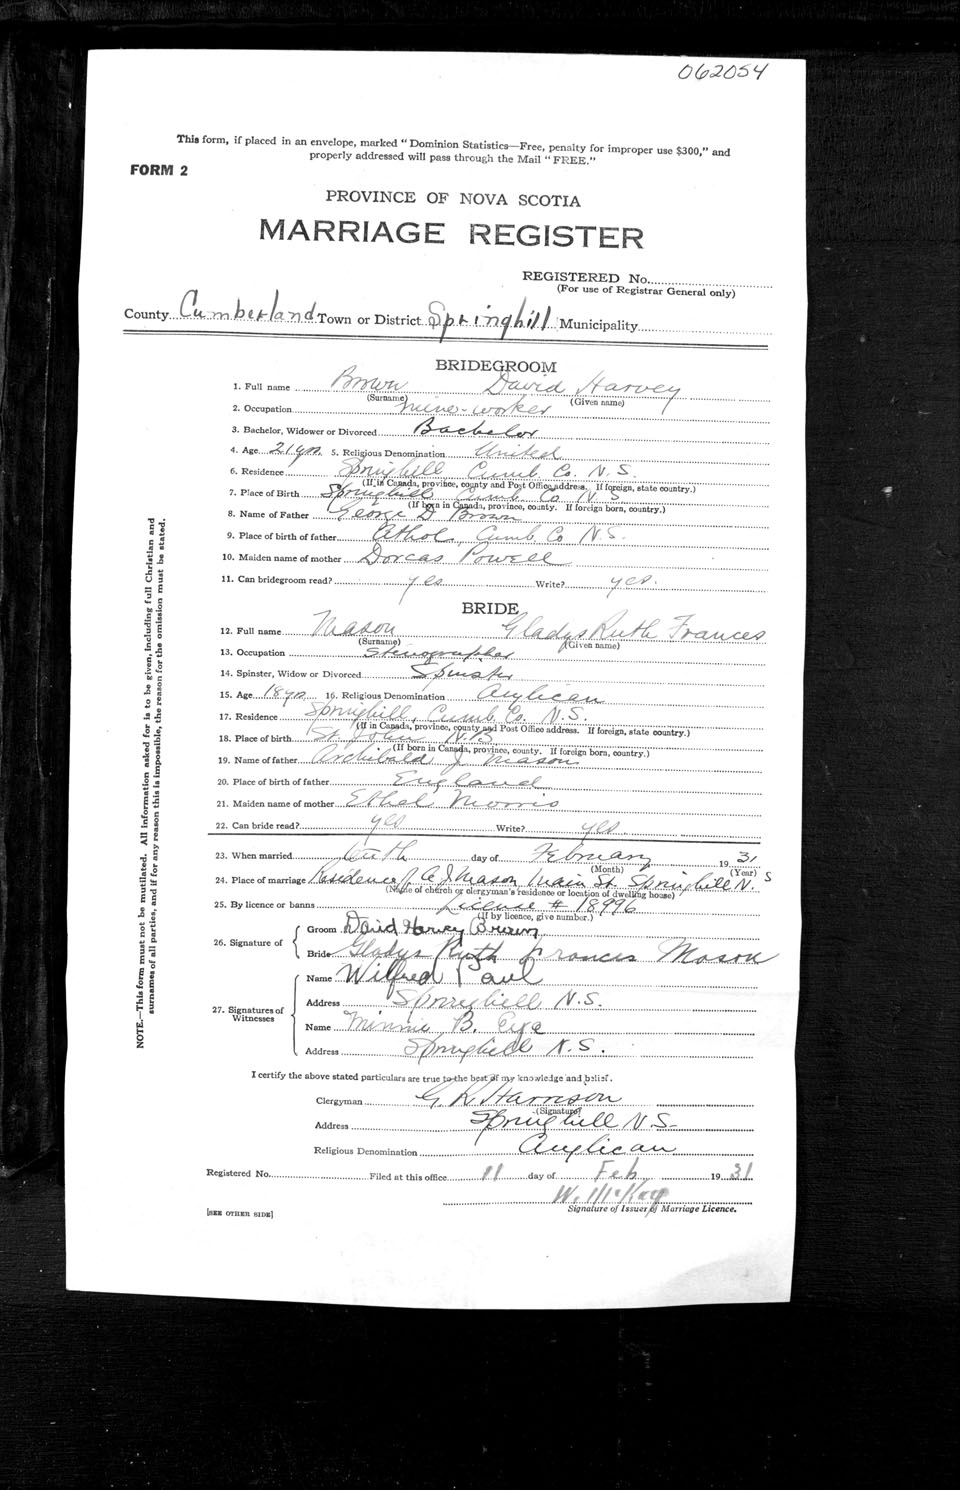 062054
This form, if placed in an envelope, marked "Dominion Statistics—Free, penalty for improper use $300," and
properly addressed will pass through the Mail "FREE."
FORM 2
PROVINCE OF NOVA SCOTIA
MARRIAGE REGISTER
REGISTERED No.
(For use of Registrar General only)
County Cumberland Town or District Springhill Municipality
BRIDEGROOM
1. Full name Brown David Harvey
(Surname) (Given name)
2. Occupation mine-worker
3. Bachelor, Widower or Divorced Bachelor
4. Age 21 yrs. 5. Religious Denomination United
6. Residence Springhill Cumb. Co. N.S.
(If in Canada, province, county and Post Office address. If foreign, state country.)
7. Place of Birth Springhill Cumb. Co N S
(If born in Canada, province, county. If foreign born, country.)
8. Name of Father George D Brown
9. Place of birth of father Athol, Cumb. Co N.S.
10. Maiden name of mother Dorcas Powell
11. Can bridegroom read? yes Write? yes.
BRIDE
12. Full name Mason Gladys Ruth Frances
(Surname) (Given name)
13. Occupation Stenographer
14. Spinster, Widow or Divorced Spinster
15. Age 18 yrs. 16. Religious Denomination Anglican
17. Residence Springhill, Cumb. Co. N.S.
(If in Canada, province, county and Post Office address. If foreign, state country.)
18. Place of birth St. John N.B
(If born in Canada, province, county. If foreign born, country.)
19. Name of father Archibald J Mason
20. Place of birth of father England
21. Maiden name of mother Ethel Morris
22. Can bride read? yes Write? yes.
23. When married tenth day of February 19 31
(Month) (Year)
24. Place of marriage Residence of A J Mason Main St. Springhill N. S
(Name of church or clergyman's residence or location of dwelling house)
25. By licence or banns License # 18996
(If by licence, give number.)
26. Signature of Groom David Harvey Brown
Bride Gladys Ruth Frances Mason
27. Signatures of Witnesses Name Wilfred Paul
Address Springhill N.S.
Name Minnie B. Eye
Address Springhill N.S.
I certify the above stated particulars are true to the best of my knowledge and belief.
Clergyman G. R. Harrison
(Signature)
Address Springhill N.S.
Religious Denomination Anglican
Registered No. Filed at this office 11 day of Feb 19 31
W. McKay
Signature of Issuer of Marriage Licence.
[SEE OTHER SIDE]
NOTE.—This form must not be mutilated. All information asked for is to be given, including full Christian and
surnames of all parties, and if for any reason this is impossible, the reason for the omission must be stated.